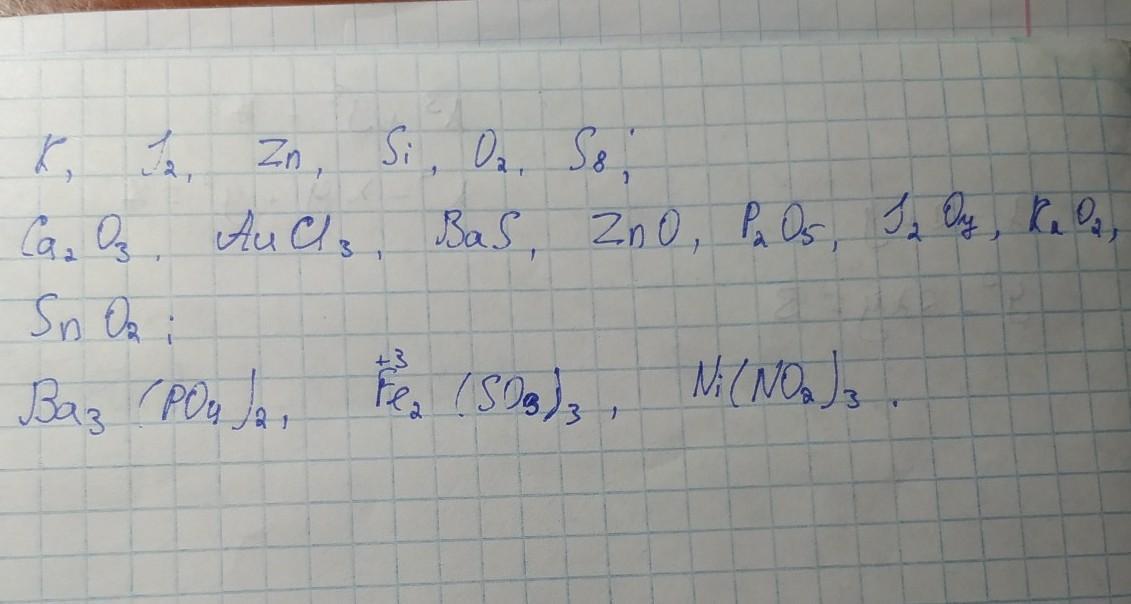 K, J₂, Zn, Si, O₂, S₈;
Ca₂O₃, AuCl₃, BaS, ZnO, P₂O₅, J₂O₇, K₂O₂,
SnO₂;
Ba₃(PO₄)₂, Fe₂⁺³(SO₃)₃, Ni(NO₂)₃.